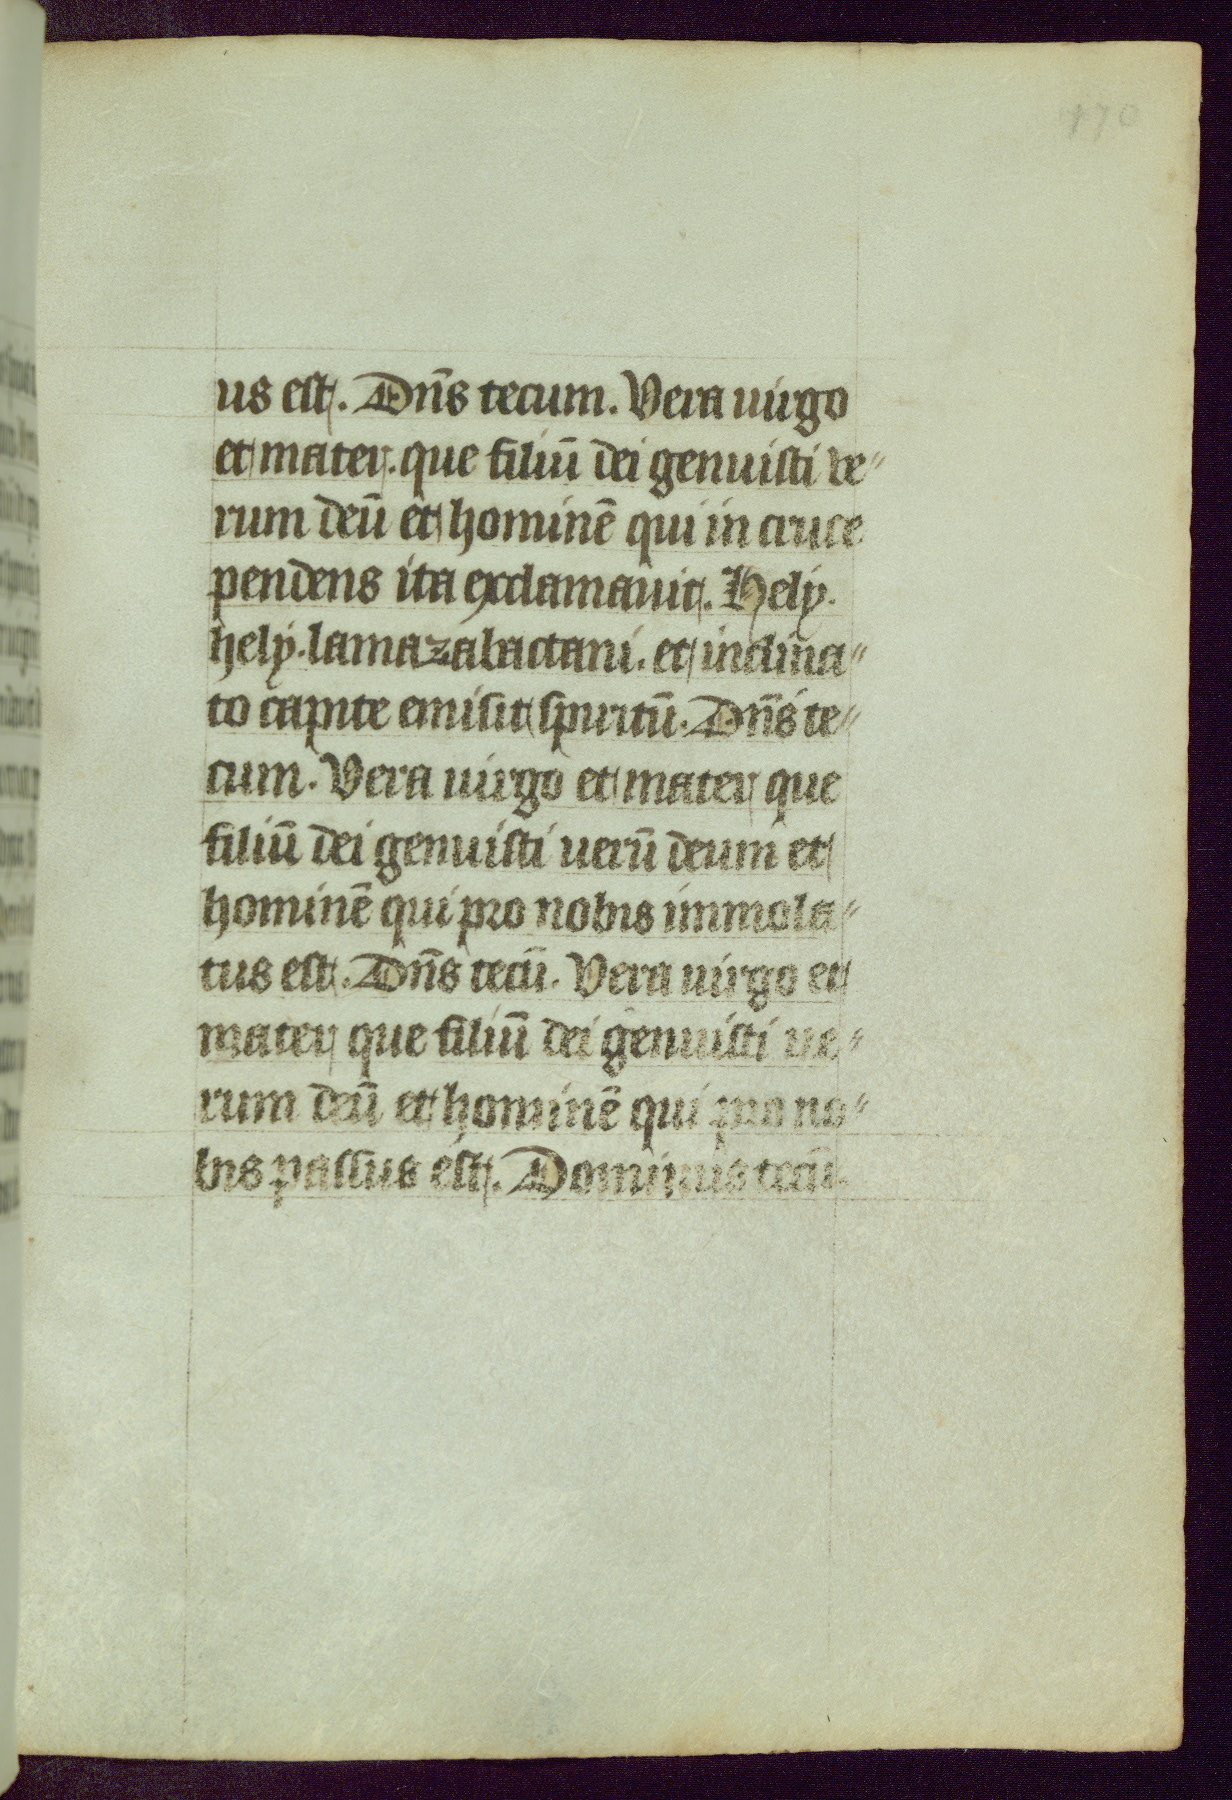 170
us est. Dn̄s tecum. Vera uirgo
et mater. que filiū dei genuisti ve〃
rum deū et hominē qui in cruce
pendens ita exclamauit. Hely.
hely. lamazabactani. et inclina〃
to capite emisit spiritū. Dn̄s te〃
cum. Vera uirgo et mater que
filiū dei genuisti uerū deum et
hominē qui pro nobis immola〃
tus est. Dn̄s tecū. Vera uirgo et
mater que filiū dei genuisti ue〃
rum deū et hominē qui pro no〃
bis passus est. Dominus tecū.